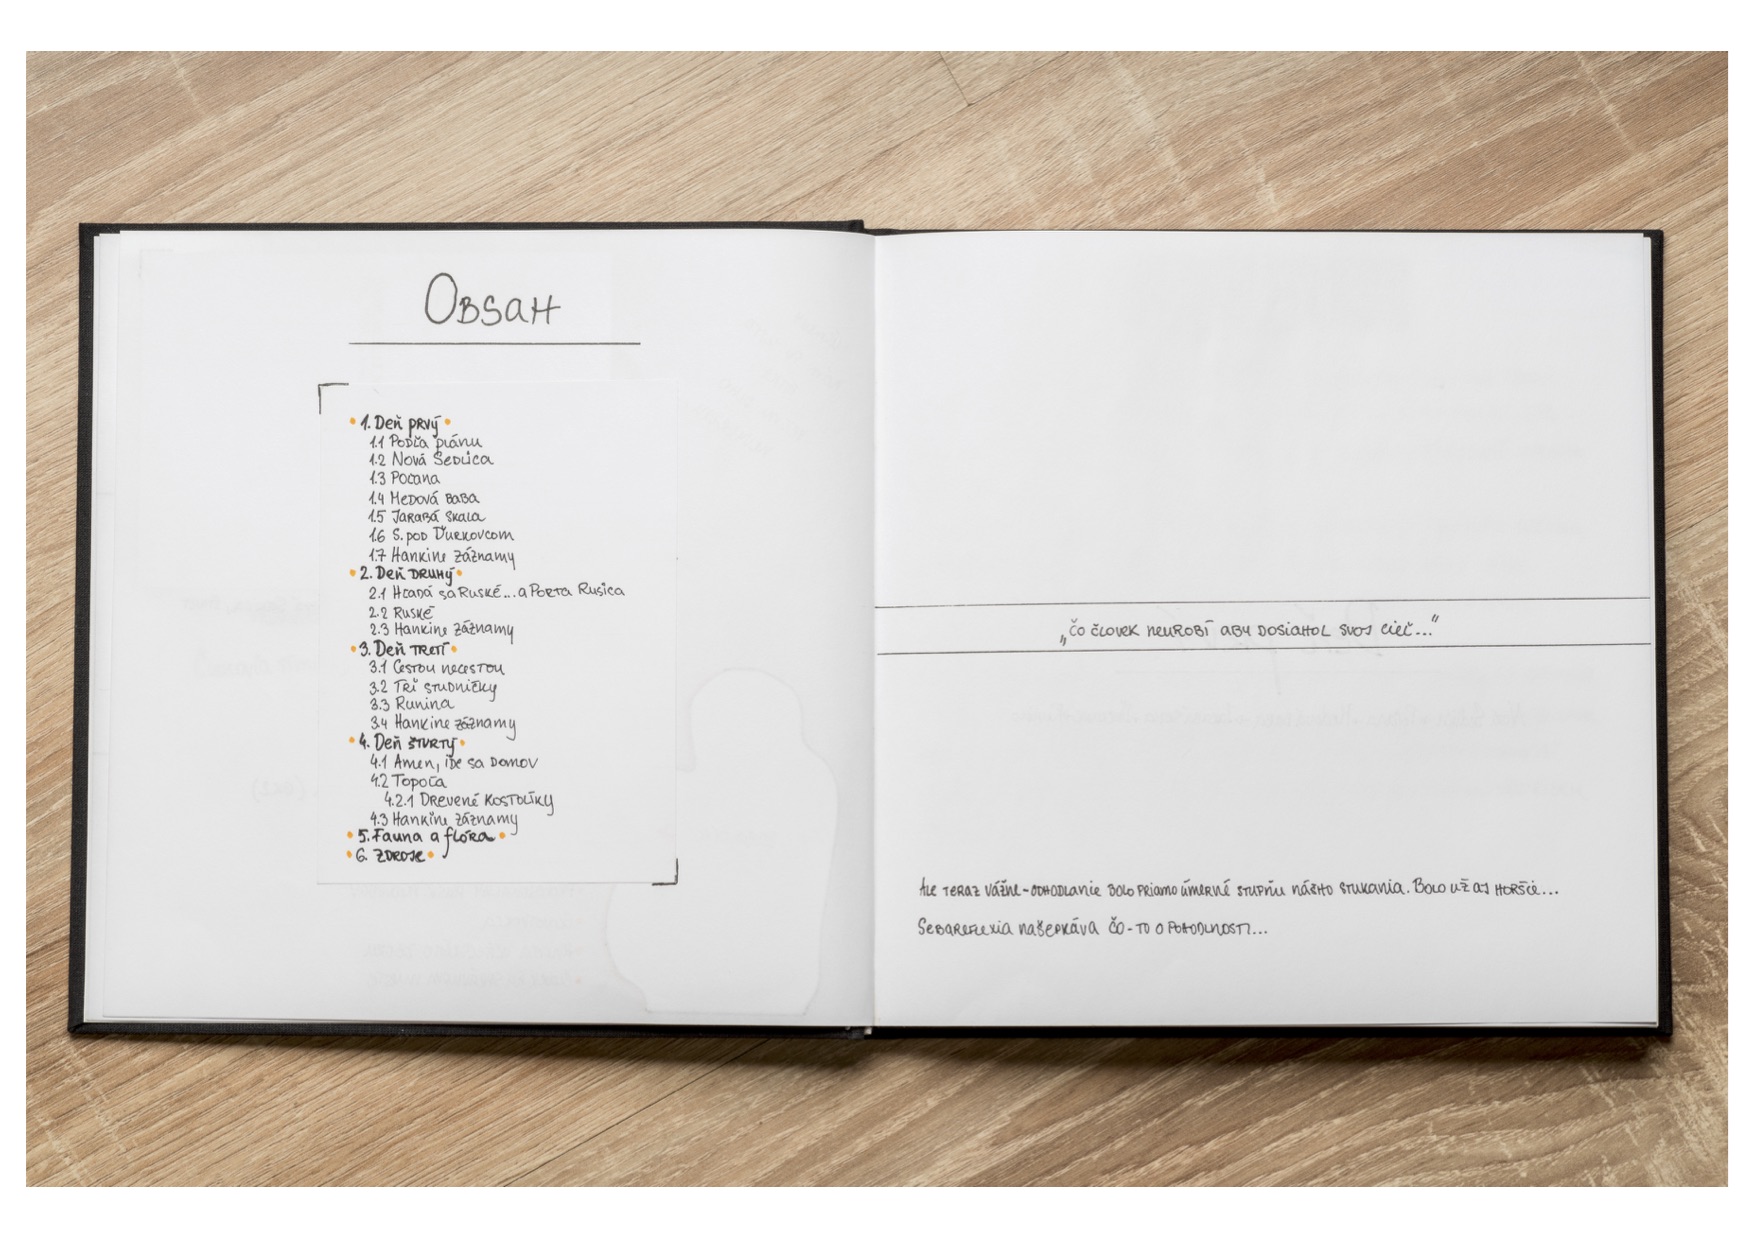 Obsah
1. Deň prvý
1.1 Podľa plánu
1.2 Nová Sedlica
1.3 Poľana
1.4 Medová baba
1.5 Jarabá skala
1.6 S. pod Ďurkovcom
1.7 Hankine záznamy
2. Deň druhý
2.1 Hľadá sa Ruské... a Porta Rusica
2.2 Ruské
2.3 Hankine záznamy
3. Deň tretí
3.1 Cestou necestou
3.2 Tri studničky
3.3 Runina
3.4 Hankine záznamy
4. Deň štvrtý
4.1 Amen, ide sa domov
4.2 Topoľa
4.2.1 Drevené kostolíky
4.3 Hankine záznamy
5. Fauna a flóra
6. Zdroje
„Čo človek neurobí aby dosiahol svoj cieľ..."
Ale teraz vážne - odhodlanie bolo priamo úmerné stupňu nášho stukania. Bolo už aj horšie...
Sebareflexia našepkáva čo-to o pohodlnosti...